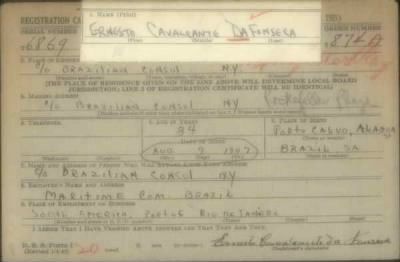 1. NAME (Print)
REGISTRATION CA
SERIAL NUMBER
ORDER NUMBER
ERNESTO CAVALCANTE DA FONSECA
(First) (Middle) (Last)
6869
2. PLACE OF RESIDENCE (Print)
c/o BRAZILIAN CONSUL NY
[THE PLACE OF RESIDENCE GIVEN ON THE LINE ABOVE WILL DETERMINE LOCAL BOARD
JURISDICTION; LINE 2 OF REGISTRATION CERTIFICATE WILL BE IDENTICAL]
3. MAILING ADDRESS
c/o BRAZILIAN CONSUL NY Rockefeller Plaza
4. TELEPHONE
5. AGE IN YEARS
6. PLACE OF BIRTH
34
PORTO CALVO, ALAGOA
DATE OF BIRTH
AUG 7 1907
BRAZIL SA
c/o BRAZILIAN CONSUL NY
8. EMPLOYER'S NAME AND ADDRESS
MARITIME COM. BRAZIL
9. PLACE OF EMPLOYMENT OR BUSINESS
SOUTH AMERICA RIO DE JANEIRO
I AFFIRM THAT I HAVE VERIFIED ABOVE ANSWERS AND THAT THEY ARE TRUE.
D. S. S. Form 1
Ernesto Cavalcante da Fonseca